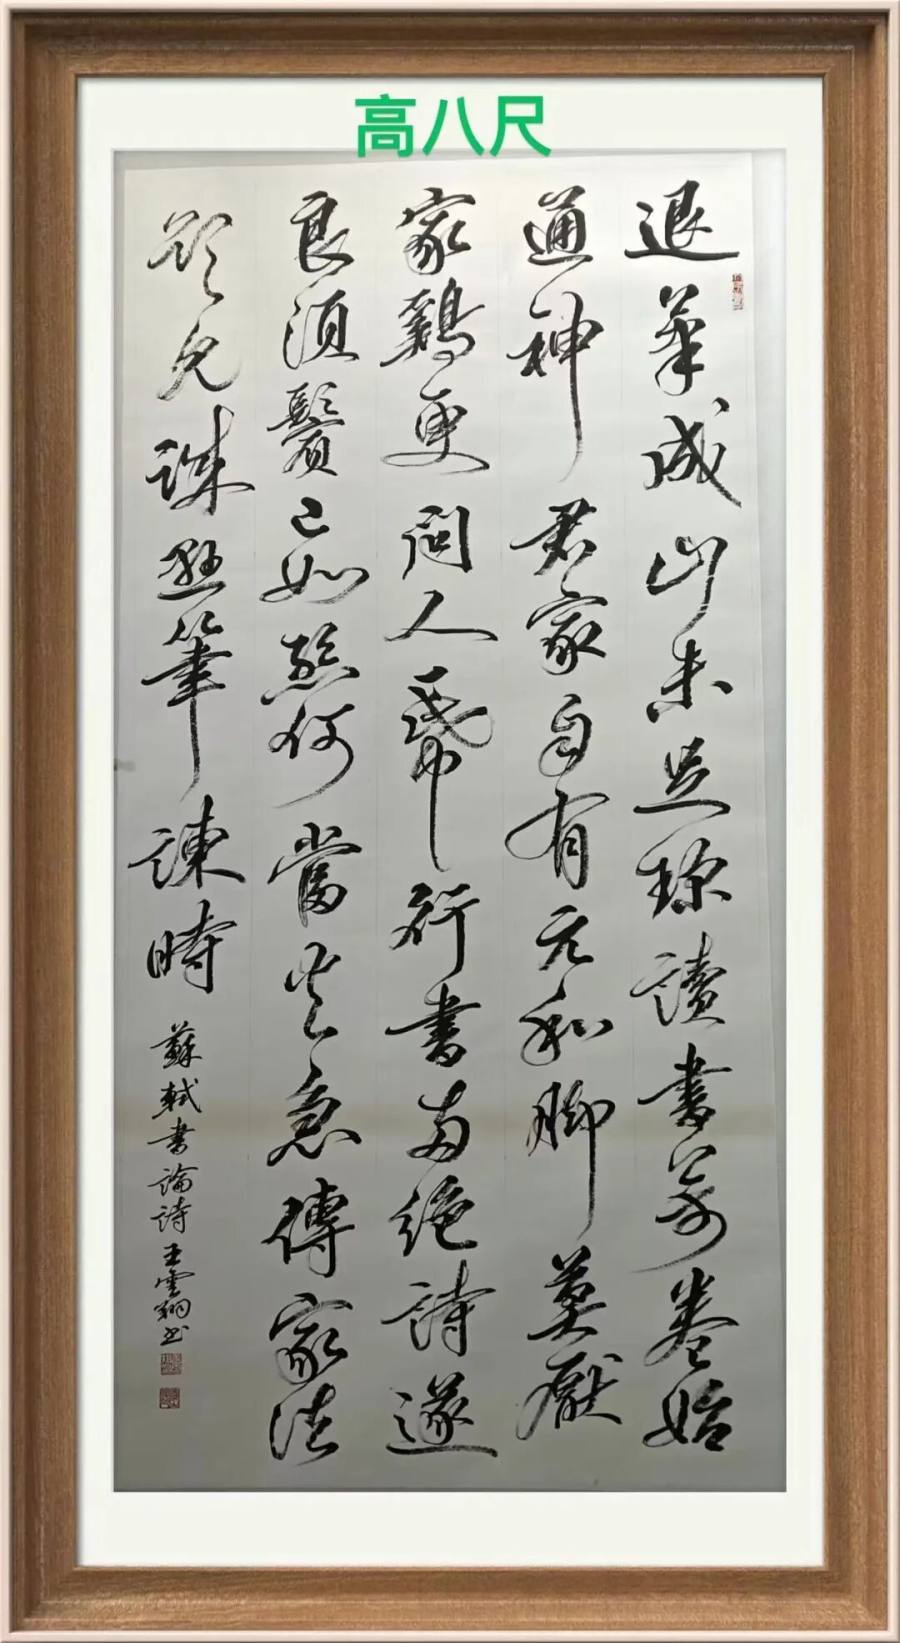 高八尺
退筆成山未足珍讀書万卷始
通神君家自有元和脚莫厭
家鷄更問人一帋行書両絶詩遂
良須鬢已如絲何當火急傳家法
欲見誠懸筆諫時
蘇軾書論詩王雲翔书